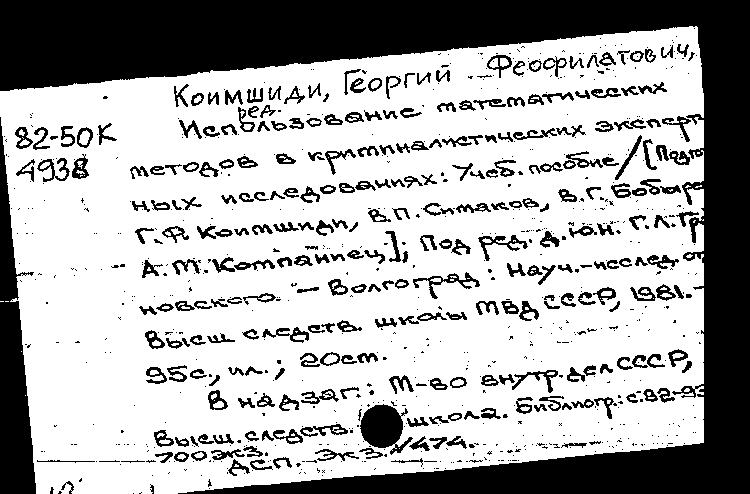 Коимшиди, Георгий Феофилатович,
ред.
82-50К Использование математических
4938 методов в криминалистических эксперт
ных исследованиях: Учеб. пособие / [Подгот
Г.Ф. Коимшиди, В.П. Симаков, В.Г. Бобырев
А.М. Компаниец]; Под ред. д.ю.н. Г.Л. Гра
новского. — Волгоград: Науч.-исслед. от
Высш. следств. школы МВД СССР, 1981. -
95с., ил.; 20см.
В надзаг.: М-во внутр. дел СССР,
Высш. следств. школа. Библиогр.: с. 92-93
700 экз.
ДСП. Экз. № 474.